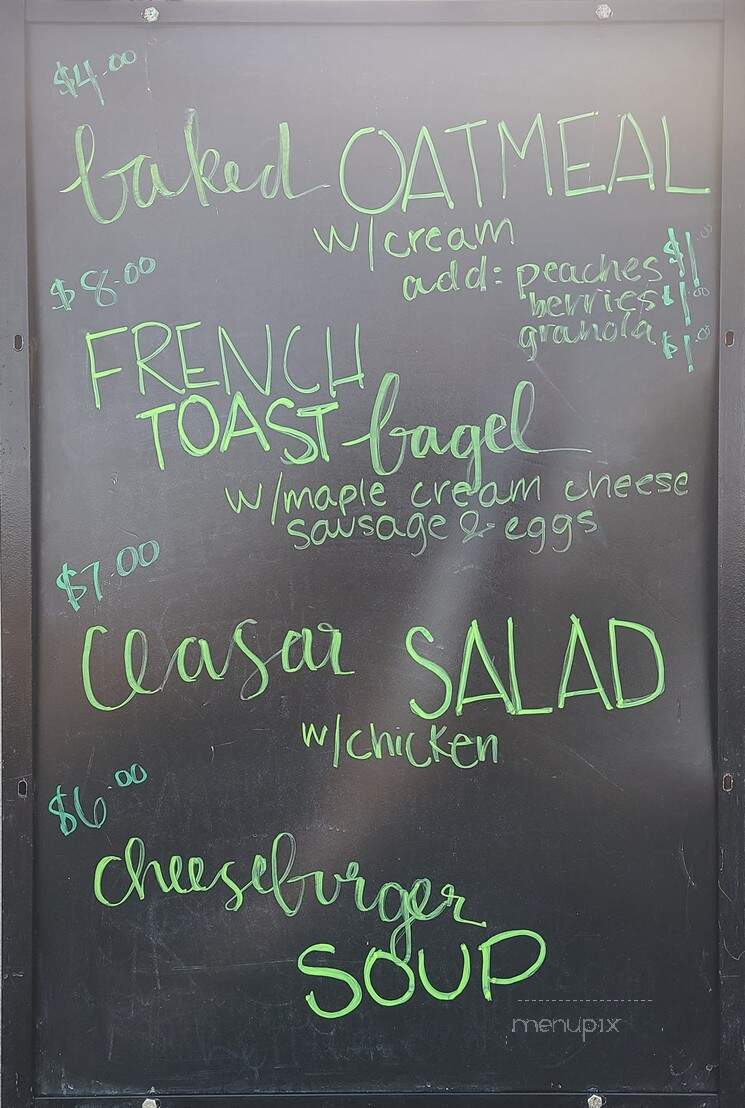 $4.00
baked OATMEAL
w/cream
add: peaches $1.00
berries $1.00
granola $1.00
$8.00
FRENCH
TOAST bagel
w/maple cream cheese
sausage & eggs
$7.00
Ceasar SALAD
w/chicken
$6.00
cheeseburger
SOUP
menupix